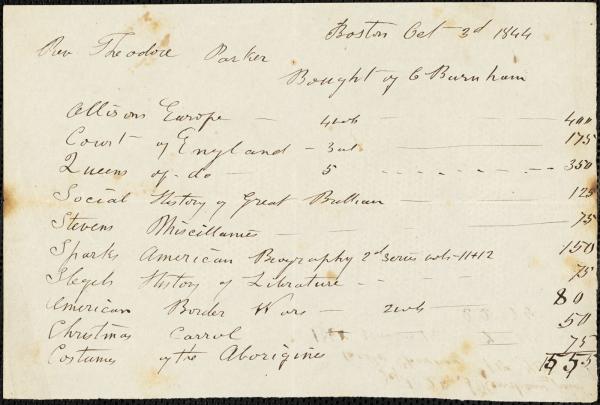 Boston Oct 3d 1844
Rev Theodore Parker
Bought of C Burnham
Allisons Europe — 4 vols — 400
Court of England — 3 vol — 175
Queens of - do — 5 - - - - - 350
Social History of Great Brittian — 125
Stevens Miscillanies — 75
Sparks American Biography 2d series vols - 11 + 12 150
Slegels History of Literature - - - 75
American Border Wars — 2 vols — 80
Christmas Carrol — 50
Costumes of the Aborigines — 75